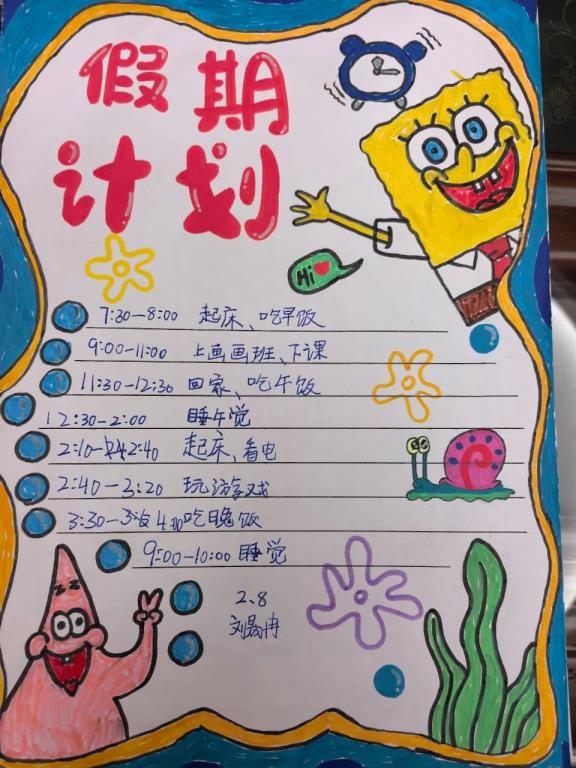 假期
计划
Hi
7:30—8:00 起床、吃早饭
9:00—11:00 上画画班、下课
11:30—12:30 回家、吃午饭
12:30—2:00 睡午觉
2:10—2:40 起床、看电
2:40—3:20 玩游戏
3:30— 吃晚饭
9:00—10:00 睡觉
2、8
刘